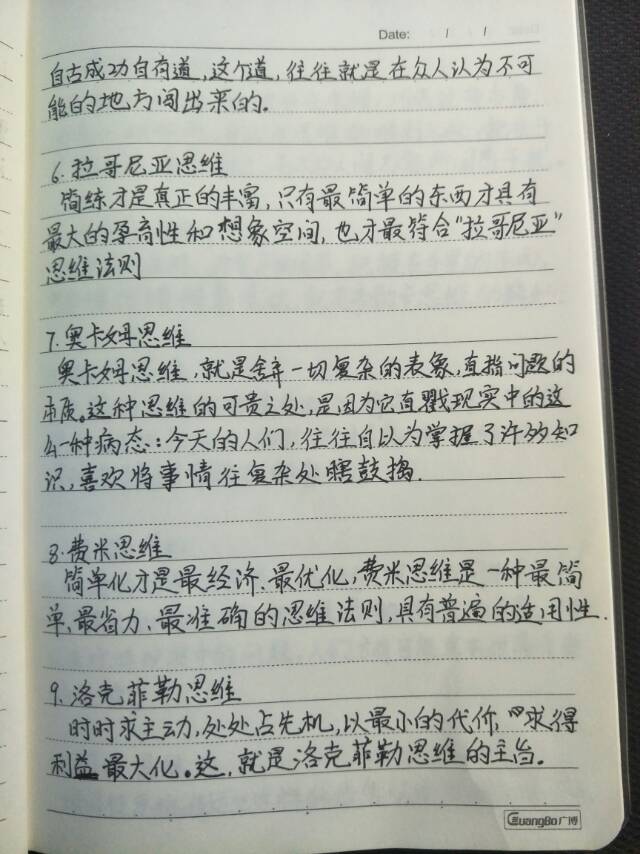 Date: / /
自古成功自有道，这个道，往往就是在众人认为不可
能的地方闯出来的。
6.拉哥尼亚思维
简练才是真正的丰富，只有最简单的东西才具有
最大的孕育性和想象空间，也才最符合“拉哥尼亚”
思维法则
7.奥卡姆思维
奥卡姆思维，就是舍弃一切复杂的表象，直指问题的
本质。这种思维的可贵之处，是因为它直戳现实中的这
么一种病态：今天的人们，往往自以为掌握了许多知
识，喜欢将事情往复杂处瞎鼓捣.
8.费米思维
简单化才是最经济、最优化，费米思维是一种最简
单、最省力、最准确的思维法则，具有普遍的适用性.
9.洛克菲勒思维
时时求主动，处处占先机，以最小的代价，求得
利益最大化。这，就是洛克菲勒思维的主旨.
GuangBo广博